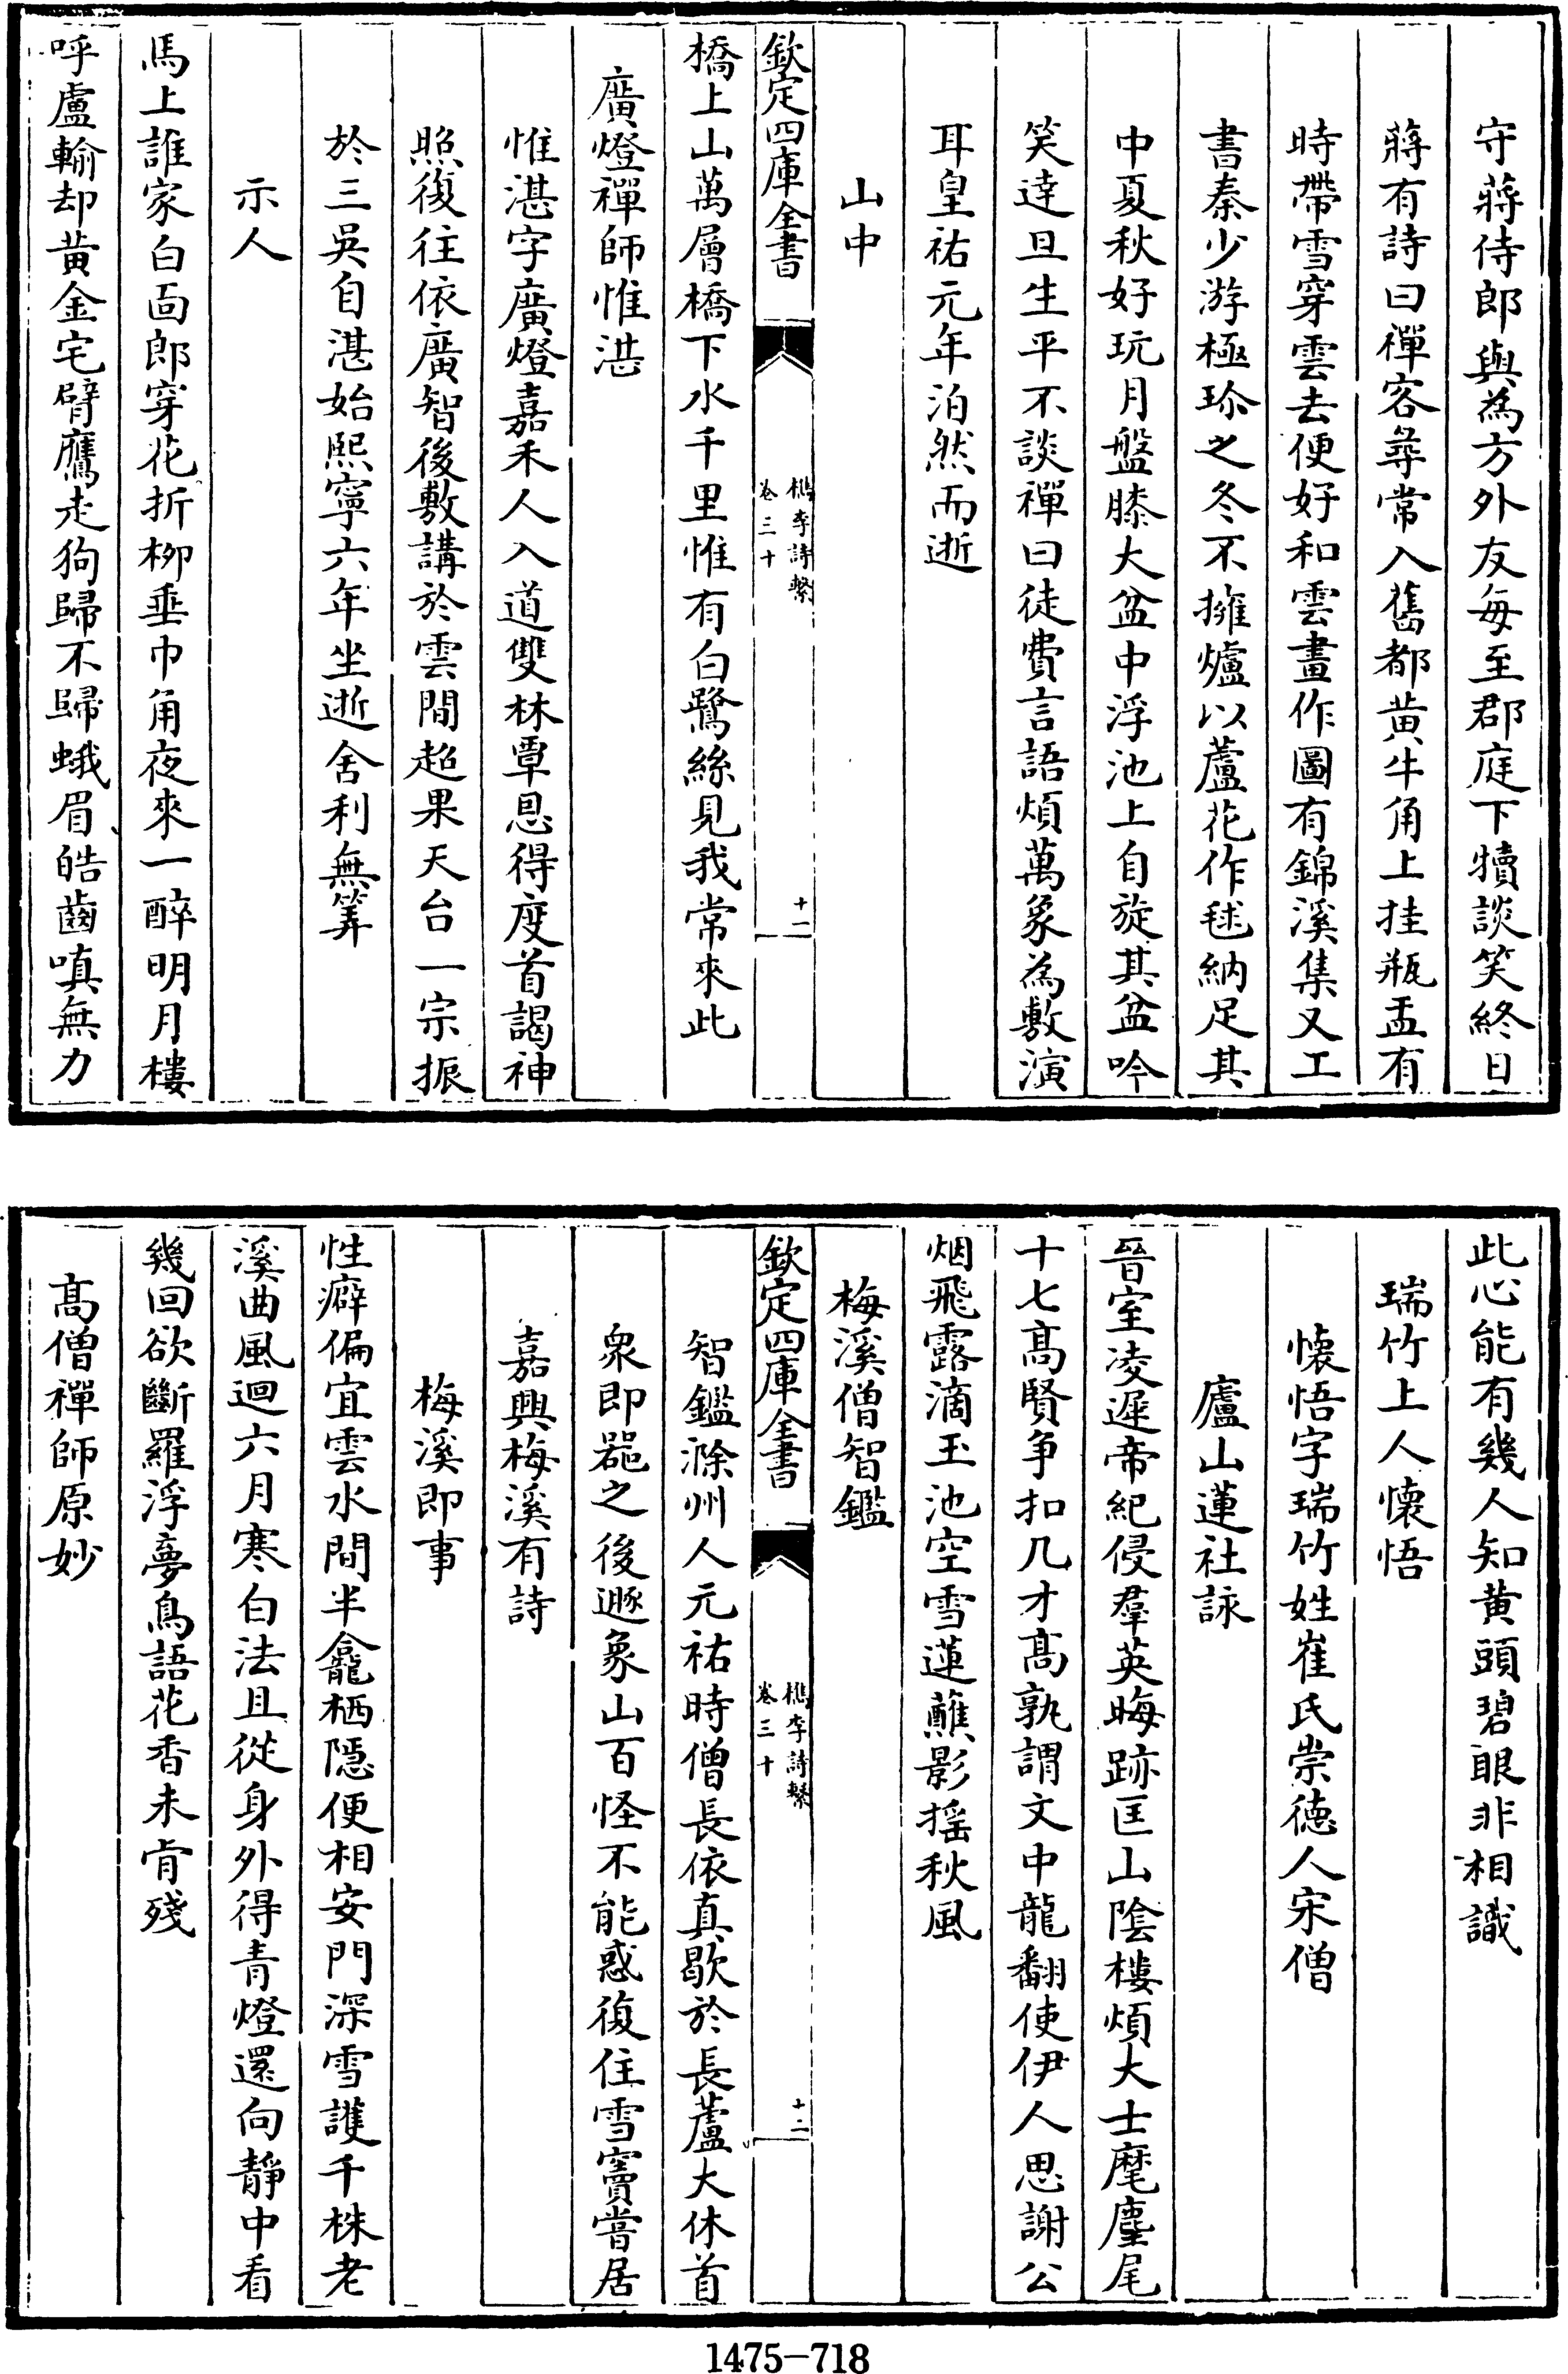 守蔣侍郎與為方外友每至郡庭下犢談笑終日
蔣有詩曰禪客尋常入舊都黄牛角上挂瓶盂有
時帶雪穿雲去便好和雲畫作圖有錦溪集又工
書秦少游極珍之冬不擁爐以蘆花作毬納足其
中夏秋好玩月盤膝大盆中浮池上自旋其盆吟
笑達旦生平不談禪曰徒費言語煩萬象為敷演
耳皇祐元年泊然而逝
山中
欽定四庫全書
檇李詩繫
卷三十
十一
橋上山萬層橋下水千里惟有白鷺絲見我常來此
廣燈禪師惟湛
惟湛字廣燈嘉禾人入道雙林覃恩得度首謁神
照復往依廣智後敷講於雲間超果天台一宗振
於三吳自湛始熙寧六年坐逝舍利無筭
示人
馬上誰家白面郎穿花折柳垂巾角夜來一醉明月樓
呼盧輸却黄金宅臂鷹走狗歸不歸蛾眉皓齒嗔無力
此心能有幾人知黄頭碧眼非相識
瑞竹上人懷悟
懷悟字瑞竹姓崔氏崇德人宋僧
廬山蓮社詠
晉室凌遲帝紀侵羣英晦跡匡山陰樓煩大士麾麈尾
十七髙賢争扣几才髙孰謂文中龍翻使伊人思謝公
烟飛露滴玉池空雪蓮蘸影揺秋風
梅溪僧智鑑
欽定四庫全書
檇李詩繫
卷三十
十二
智鑑滁州人元祐時僧長依真歇於長蘆大休首
衆即噐之後遯象山百怪不能惑復住雪竇嘗居
嘉興梅溪有詩
梅溪即事
性癖偏宜雲水間半龕栖隱便相安門深雪護千株老
溪曲風迴六月寒白法且從身外得青燈還向靜中看
幾回欲斷羅浮夢鳥語花香未肯殘
髙僧禪師原妙
1475-718